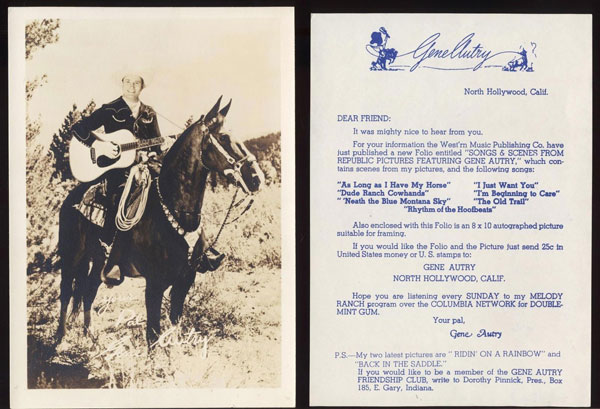 Autry
Gene Autry
?
North Hollywood, Calif.
DEAR FRIEND:
It was mighty nice to hear from you.
For your information the West'rn Music Publishing Co. have
just published a new Folio entitled "SONGS & SCENES FROM
REPUBLIC PICTURES FEATURING GENE AUTRY," which con-
tains scenes from my pictures, and the following songs:
"As Long as I Have My Horse" "I Just Want You"
"Dude Ranch Cowhands" "I'm Beginning to Care"
"'Neath the Blue Montana Sky" "The Old Trail"
"Rhythm of the Hoofbeats"
Also enclosed with this Folio is an 8 x 10 autographed picture
suitable for framing.
If you would like the Folio and the Picture just send 25c in
United States money or U. S. stamps to:
GENE AUTRY
NORTH HOLLYWOOD, CALIF.
Hope you are listening every SUNDAY to my MELODY
RANCH program over the COLUMBIA NETWORK for DOUBLE-
MINT GUM.
Your pal,
Gene Autry
P.S.—My two latest pictures are "RIDIN' ON A RAINBOW" and
"BACK IN THE SADDLE."
If you would like to be a member of the GENE AUTRY
FRIENDSHIP CLUB, write to Dorothy Pinnick, Pres., Box
185, E. Gary, Indiana.